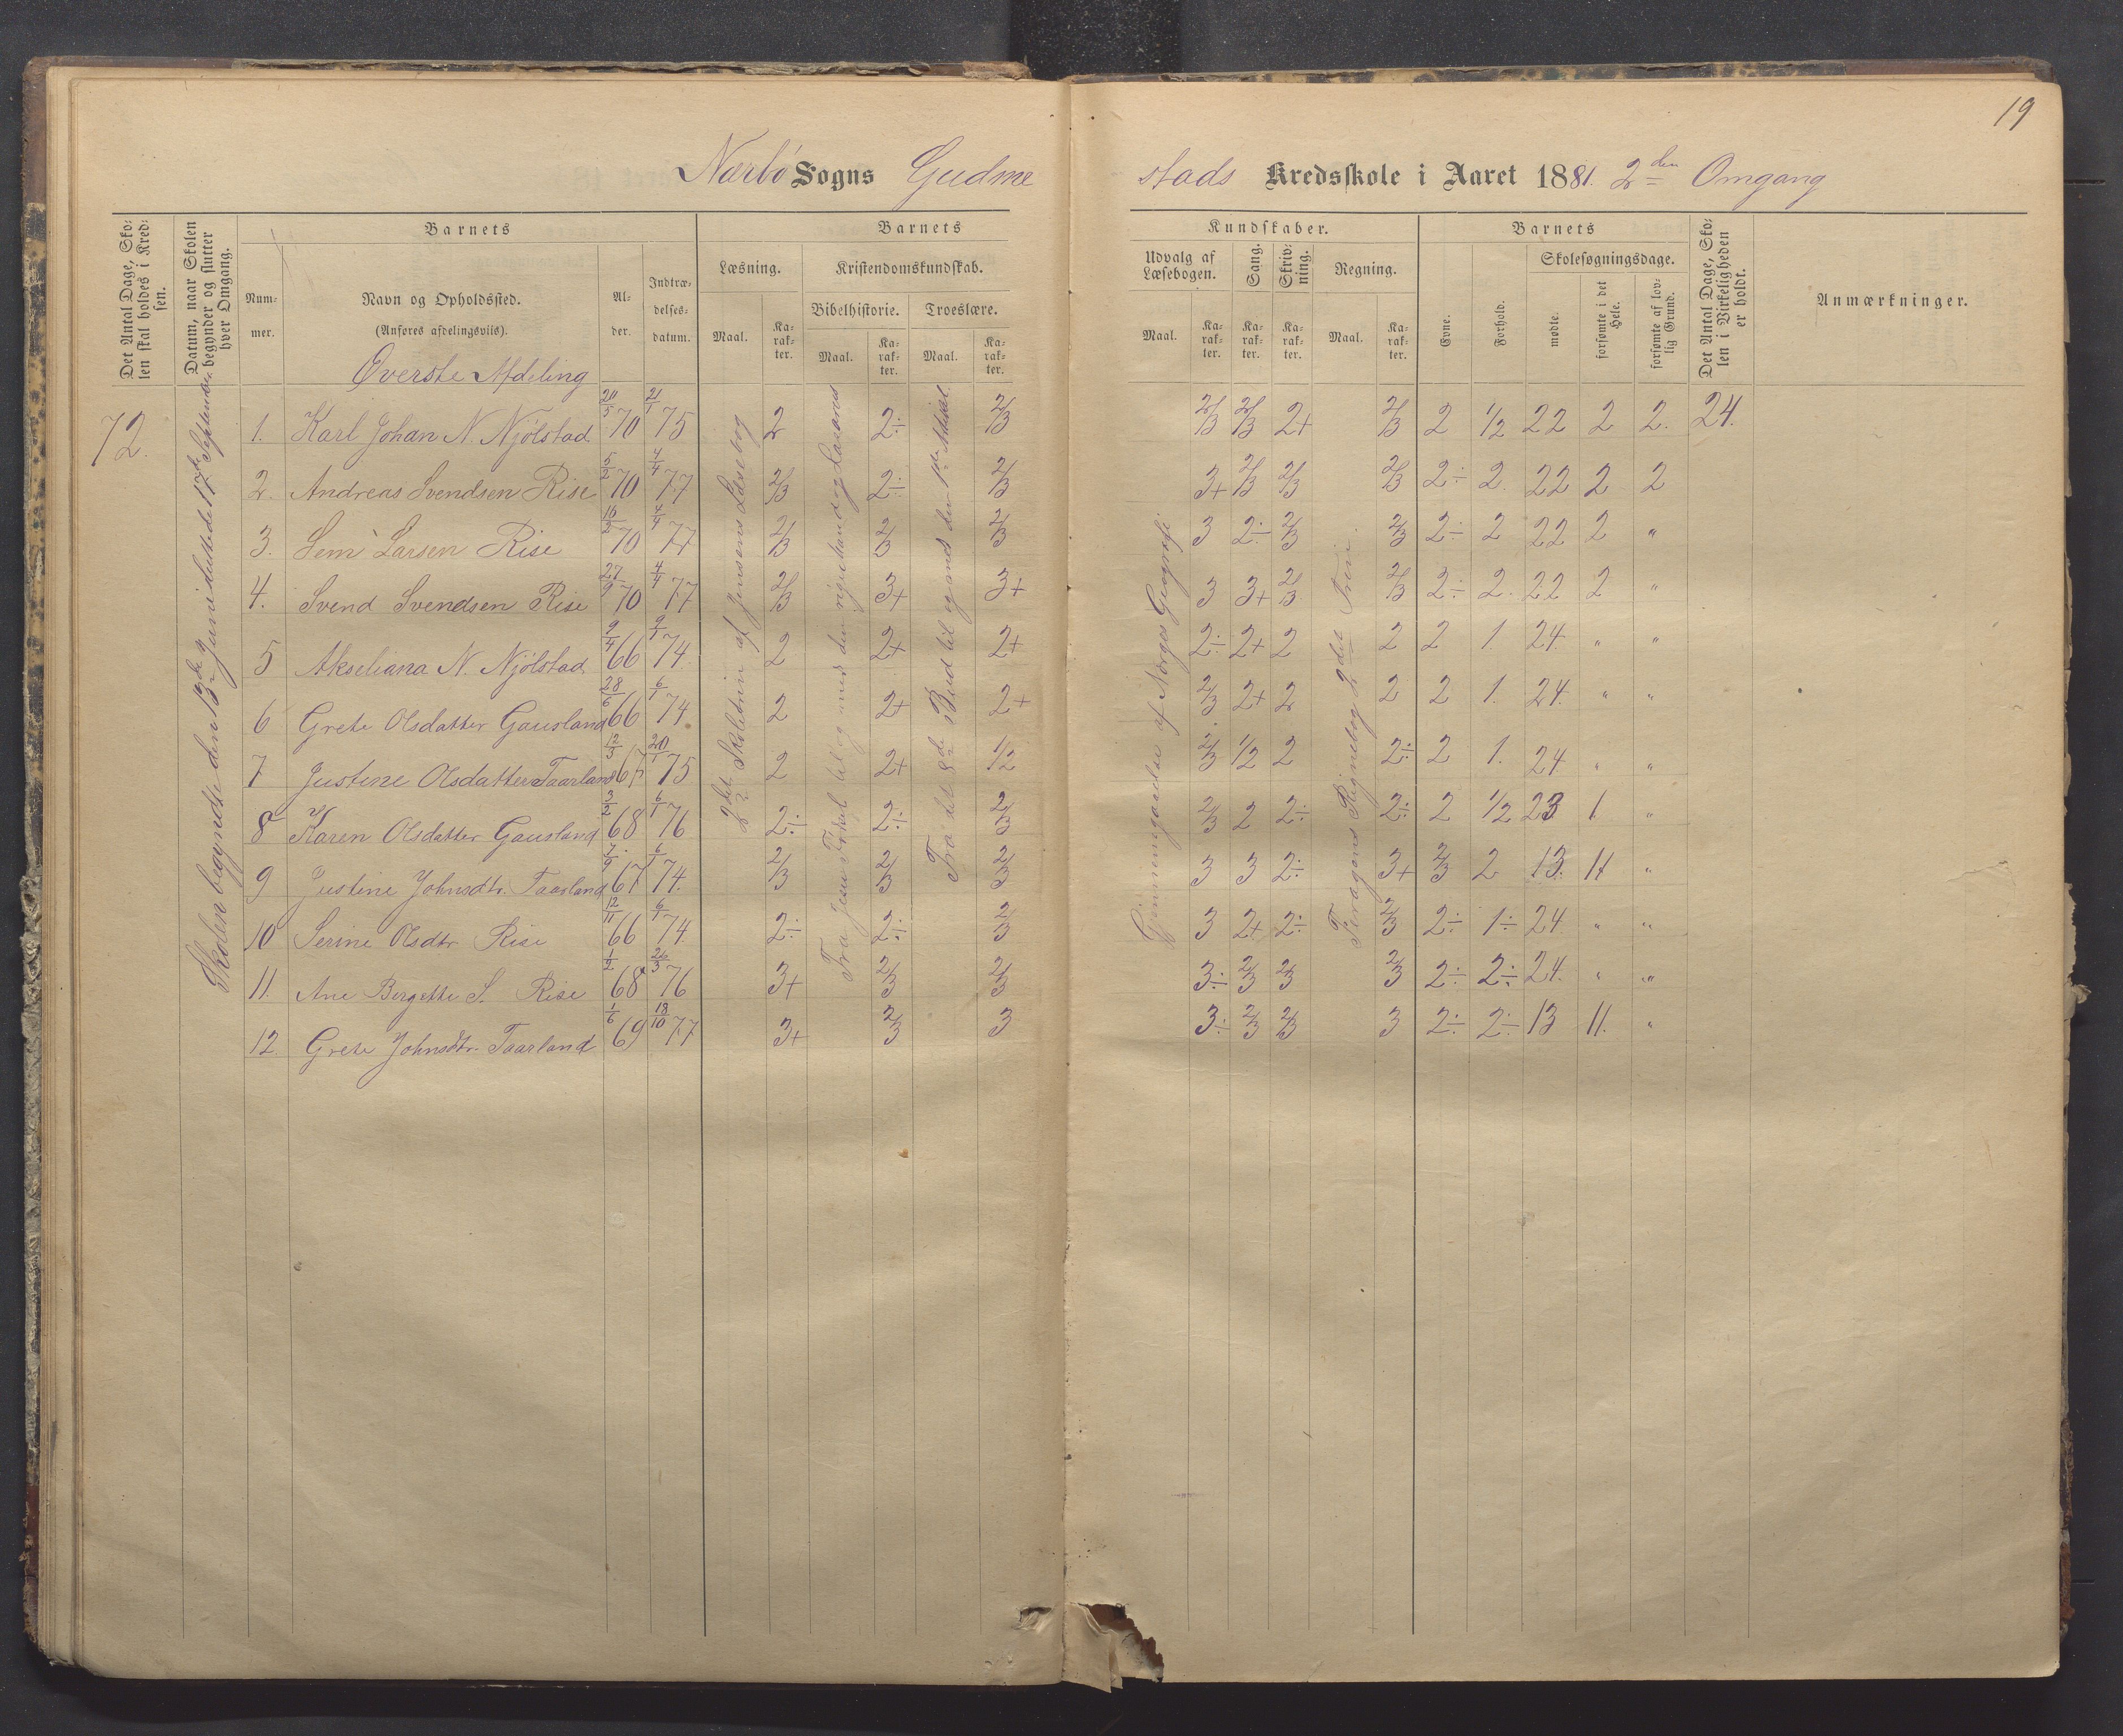 19
Nærbø Sogns Gudme
stads Kredsskole i Aaret 1881. 2den Omgang
Det Antal Dage, Sko-
len skal holdes i Kred-
sen.
Datum, naar Skolen
begynder og slutter
hver Omgang.
Barnets
Num-
mer.
Navn og Opholdssted.
(Anføres afdelingsviis).
Al-
der.
Indtræ-
delses-
datum.
Barnets
Læsning.
Kristendomskundskab.
Bibelhistorie. Troeslære.
Maal. Ka-
rak-
ter. Maal. Ka-
rak-
ter. Maal. Ka-
rak-
ter.
Kundskaber.
Udvalg af
Læsebogen.
Sang.
Skriv-
ning.
Regning.
Maal. Ka-
rak-
ter. Ka-
rak-
ter. Ka-
rak-
ter. Maal. Ka-
rak-
ter.
Barnets
Evne.
Forhold.
Skolesøgningsdage.
mødte.
forsømte i det
Hele.
forsømte af lov-
lig Grund.
Det Antal Dage, Sko-
len i Virkeligheden
er holdt.
Anmærkninger.
Øverste Afdeling
72.
Skolen begyndte den 13de Juni sluttede 17de September
2det Skoletrin af Jensens Læsebog
Fra Jesu til og med den rige mand og Lazarus
Fra til 8de Bud til og med den 1ste Artikel
Gjennemgaaelse af Norges Geografi
Regnebog 2det Trin
1. Karl Johan N. Njølstad 20/5 70 21/1 75 2 2÷ 2/3 2/3 2/3 2+ 2/3 2 1/2 22 2 2. 24.
2. Andreas Svendsen Rise 5/2 70 4/4 77 2/3 2÷ 2/3 3+ 2/3 2/3 2/3 2÷ 2. 22 2 2
3. Sem Larsen Rise 16/2 70 4/4 77 2/3 2/3 2/3 3 2÷ 2/3 2/3 2÷ 2 22 2 "
4. Svend Svendsen Rise 27/9 70 4/4 77 2/3 3+ 3+ 3 3+ 2/3 2/3 2÷ 2. 22 2 "
5 Akseliana N. Njølstad 9/4 66 9/1 74 2 2+ 2+ 2÷ 2+ 2 2 2 1. 24. " "
6 Grete Olsdatter Gausland 28/6 66 6/1 74 2 2+ 2+ 2/3 2+ 2 2 2 1. 24. " "
7 Justine Olsdatter Taarland 12/3 67 20/1 75 2 2+ 1/2 2/3 1/2 2 2÷ 2 1. 24 " "
8 Karen Olsdatter Gausland 3/2 68 6/1 76 2÷ 2÷ 2/3 2/3 2 2÷ 2÷ 2 1/2 23 1 "
9 Justine Johnsdtr. Taarland 7/9 67 6/1 74. 2/3 2/3 2/3 3 3 2÷ 3+ 2/3 2 13. 11 "
10 Serine Olsdtr Rise 12/11 66 6/1 74 2÷ 2÷ 2/3 3 2+ 2÷ 2/3 2÷ 1÷ 24 " "
11. Ane Bergette S. Rise 1/2 68 26/3 76 3+ 2/3 2/3 3÷ 2/3 2/3 2/3 2÷ 2÷ 24. " "
12 Grete Johnsdtr. Taarland 1/6 69 18/10 77 3+ 2/3 3 3÷ 2/3 2/3 3 2÷ 2÷ 13 11. "